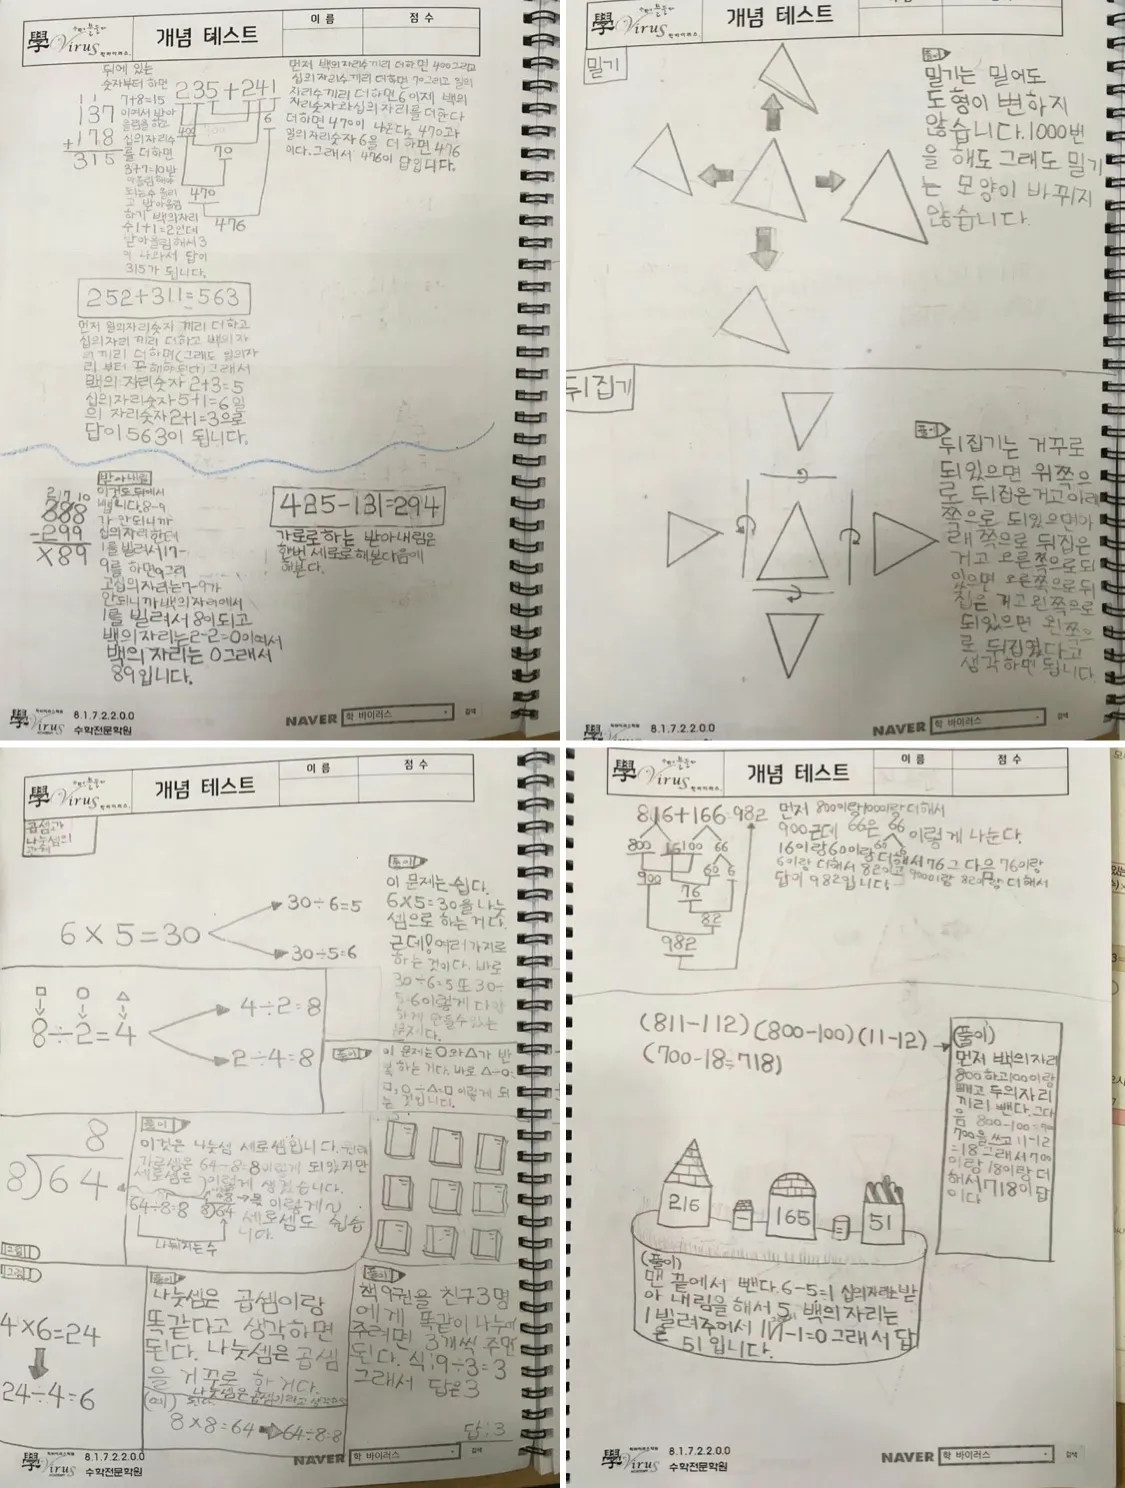 개념 테스트
이 름
점 수
뒤에 있는
숫자부터 하면
7+8=15
이여서 받아
올림을 하고
십의자리수
를 더하면
1 1
137
+178
315
고 받아올림
하기 백의자리
수1+1=2인데
받아올림해서3
이 나와서 답이
315가 됩니다.
235+241
400
6
70
470
476
먼저 백의자리수끼리 더하면 400그리고
십의자리수끼리 더하면 70그리고 일의
자리수끼리 더하면6이제 백의
자리숫자와십의 자리를 더한다
더하면 470이 나온다. 470과
일의자리숫자 6을 더하면 476
이다. 그래서 476이 답입니다.
252+311=563
먼저 일의자리숫자 끼리 더하고
십의자리 끼리 더하고 백의 자
리 끼리 더하면(그래도 일의자
리 부터 꼭 해야된다)그래서
백의 자리숫자 2+3=5
십의자리숫자5+1=6일
의 자리숫자2+1=3으로
답이 563이 됩니다.
받아내림
2 17 10
388
-299
×89
이것도 뒤에서
뺍니다.8-9
가 안되니까
십의자리한테
1를 빌려서17-
9를 하면9그리
고십의자리는7-9가
안되니까백의자리에서
1를 빌려서 8이되고
백의자리는2-2=0이여서
백의 자리는 0그래서
89입니다.
425-131=294
가로로하는 받아내림은
한번 세로로해본다음에
해본다.
學 Virus
8.1.7.2.2.0.0
수학전문학원
NAVER 학 바이러스 검색
개념 테스트
점 수
밀기
풀이
밀기는 밀어도
도형이 변하지
않습니다.1000번
을 해도 그래도 밀기
는 모양이 바뀌지
않습니다.
뒤집기
풀이
뒤집기는 거꾸로
되있으면 위쪽으
로 뒤집은거고아래
쪽으로 되있으면아
래쪽으로 뒤집은
거고 오른쪽으로되
있으면 오른쪽으로뒤
집은 거고왼쪽으로
되있으면 왼쪽으
로 뒤집었다고
생각하면 됩니다.
Virus
8.1.7.2.2.0.0
NAVER 학 바이러스 검색
學 Virus
개념 테스트
이 름
점 수
곱셈과
나눗셈의
관계
6×5=30
30÷6=5
30÷5=6
풀이
이 문제는 쉽다.
6×5=30을 나눗
셈으로 하는 거다.
근데! 여러가지로
하는 것이다. 바로
30÷6=5 또 30÷
5=6이렇게 다양
하게 만들수있는
문제다.
□ ○ △
8÷2=4
4÷2=8
2÷4=8
풀이
이 문제는○와△가 반
복 하는거다. 바로 △÷○=
□, ○÷△=□ 이렇게 되
는 것입니다.
8
8)64
풀이
이것은 나눗셈 세로셈입니다. 원래
가로셈은 64÷8=8이렇게 되있지만
세로셈은 이렇게 생겼습니다.
64÷8=8
8)64
→몫 이렇게
세로셈도 쉽습
니다.
나눠지는수
그림
그림
4×6=24
24÷4=6
풀이
나눗셈은 곱셈이랑
똑같다고 생각하면
된다. 나눗셈은 곱셈
을 거꾸로 한 거다.
(예)
8×8=64
64÷8=8
풀이
책 9권을 친구3명
에게 똑같이 나누어
주려면 3개씩 주면
된다. 식:9÷3=3
그래서 답은3
답:3
Virus
8.1.7.2.2.0.0
수학전문학원
NAVER 학 바이러스 검색
學 Virus
개념 테스트
이 름
점 수
816+166=982
800 16 100 66
900 60 6
76
82
982
먼저 800이랑100이랑 더해서
900근데 66은 66 이렇게 나눈다.
60 6
16이랑60이랑 더해서76그 다음 76이랑
6이랑 더해서 82이고 900이랑 82이랑 더해서
답이 982입니다
(811-112)(800-100)(11-12)
(700-18=718)
(풀이)
먼저 백의자리
800 하고100이랑
빼고 두의자리
끼리 뺀다.그다
음 800-100=700
700을쓰고 11-12
=18그래서700
이랑 18이랑 더
해서718이 답
이다
216
165
51
(풀이)
맨 끝에서 뺀다.6-5=1 십의자리는받
아 내림을해서 5 백의자리는
1빌려주어서 1-1=0그래서 답
은 51입니다.
Virus
8.1.7.2.2.0.0
수학전문학원
NAVER 학 바이러스 검색